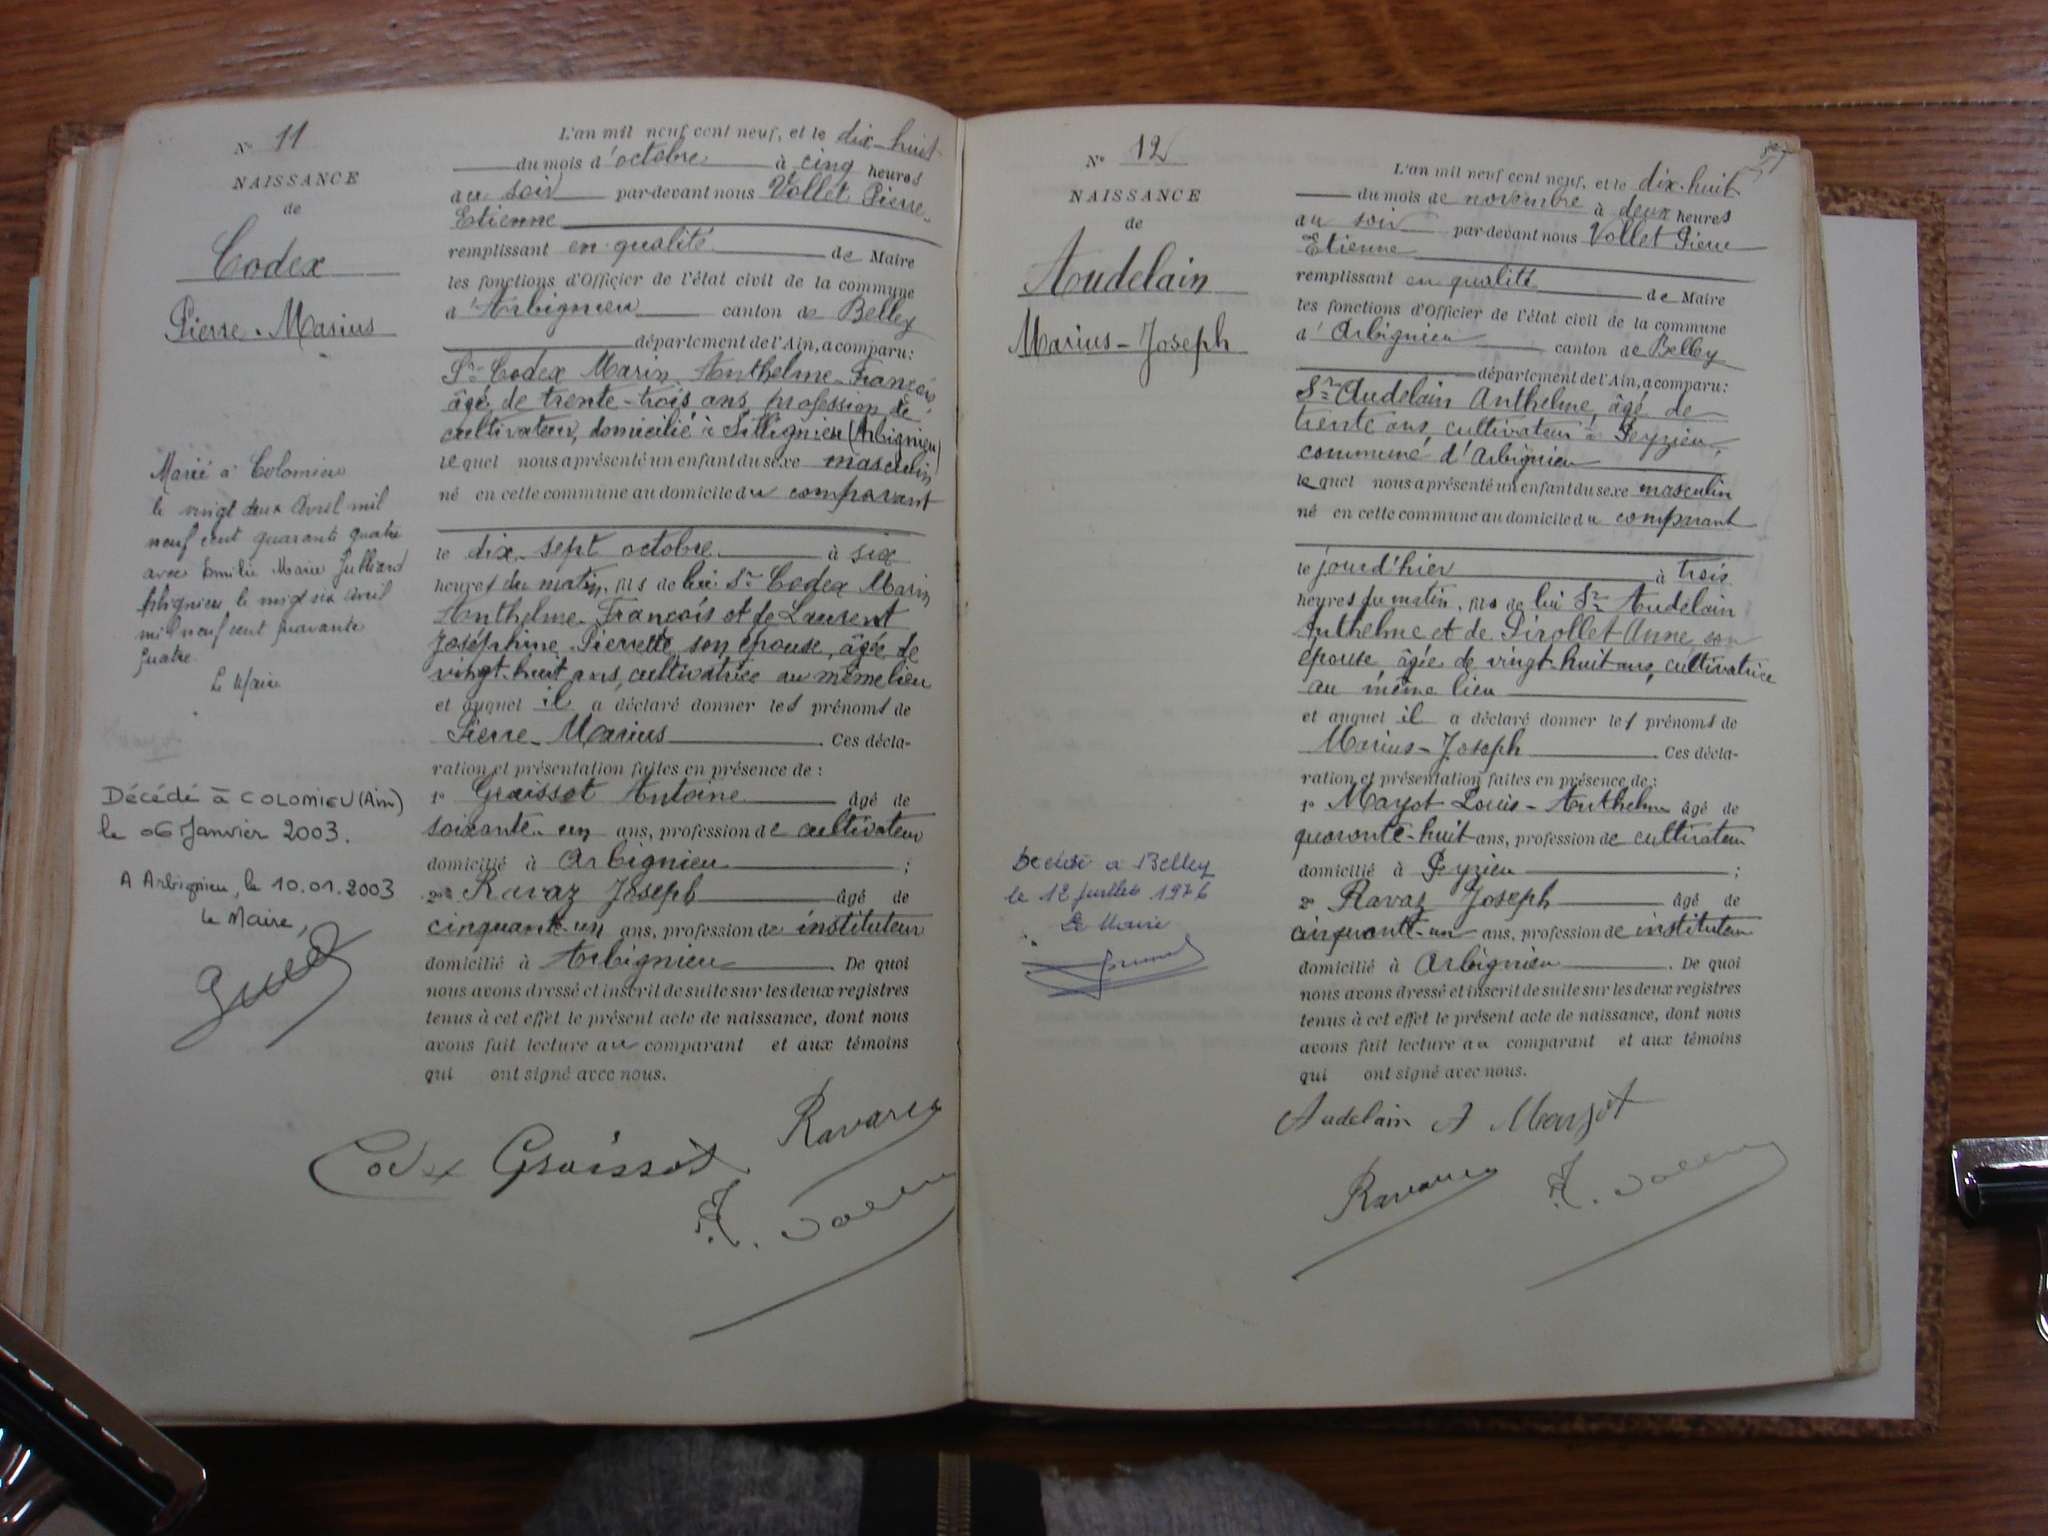 N° 11
NAISSANCE
de
Codex
Pierre-Marius
Marié à Colomieu
le vingt deux Avril mil
neuf cent quarante quatre
avec Emilie Marie Julliand
Arbignieu le vingt six avril
mil neuf cent quarante
quatre
Le Maire
Décédé à COLOMIEU (Ain)
le 06 Janvier 2003.
A Arbignieu, le 10.01.2003
le Maire,
L'an mil neuf cent neuf, et le dix-huit
du mois d'octobre à cinq heures
du soir par-devant nous Vollet Pierre-
Etienne
remplissant en qualité de Maire
les fonctions d'Officier de l'état civil de la commune
d'Arbignieu canton de Belley
département de l'Ain, a comparu:
Sr Codex Marin Anthelme-François,
âgé de trente-trois ans, profession de
cultivateur, domicilié à Sillignieu (Arbignieu)
lequel nous a présenté un enfant du sexe masculin
né en cette commune au domicile du comparant
le dix-sept octobre à six
heures du matin, fils de lui Sr Codex Marin
Anthelme-François et de Laurent
Joséphine Pierrette, son épouse, âgée de
vingt-huit ans, cultivatrice au même lieu
et auquel il a déclaré donner les prénoms de
Pierre-Marius. Ces décla-
ration et présentation faites en présence de :
1° Graissot Antoine âgé de
soixante-un ans, profession de cultivateur
domicilié à Arbignieu ;
2° Ravaz Joseph âgé de
cinquante-un ans, profession de instituteur
domicilié à Arbignieu. De quoi
nous avons dressé et inscrit de suite sur les deux registres
tenus à cet effet le présent acte de naissance, dont nous
avons fait lecture au comparant et aux témoins
qui ont signé avec nous.
Ravaz
Codex Graissot
N° 12
NAISSANCE
de
Audelain
Marius-Joseph
Décédé à Belley
le 12 juillet 1976
Le Maire
L'an mil neuf cent neuf, et le dix-huit
du mois de novembre à deux heures
du soir par-devant nous Vollet Pierre
Etienne
remplissant en qualité de Maire
les fonctions d'Officier de l'état civil de la commune
d'Arbignieu canton de Belley
département de l'Ain, a comparu:
Sr Audelain Anthelme, âgé de
trente ans, cultivateur à Peyzieu,
commune d'Arbignieu
lequel nous a présenté un enfant du sexe masculin
né en cette commune au domicile du comparant
le jour d'hier à trois
heures du matin, fils de lui Sr Audelain
Anthelme et de Pirollet Anne, son
épouse âgée de vingt-huit ans, cultivatrice
au même lieu
et auquel il a déclaré donner les prénoms de
Marius-Joseph. Ces décla-
ration et présentation faites en présence de :
1° Mayot Louis-Anthelme âgé de
quarante-huit ans, profession de cultivateur
domicilié à Peyzieu ;
2° Ravaz Joseph âgé de
cinquante-un ans, profession de instituteur
domicilié à Arbignieu. De quoi
nous avons dressé et inscrit de suite sur les deux registres
tenus à cet effet le présent acte de naissance, dont nous
avons fait lecture au comparant et aux témoins
qui ont signé avec nous.
Audelain A